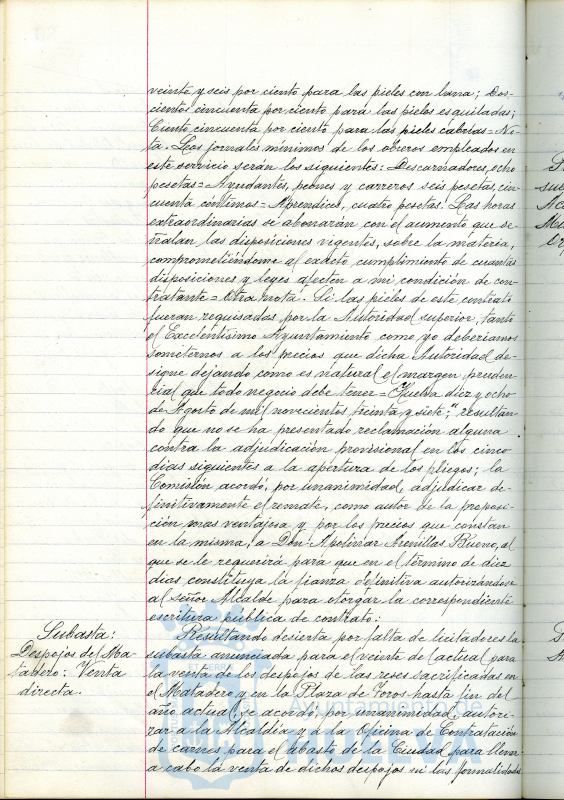 veinte y seis por ciento para las pieles con lana; Dos-
cientos cincuenta por ciento para las pieles esquiladas;
Ciento cincuenta por ciento para las pieles cabrias = No-
ta. Los jornales mínimos de los obreros empleados en
este servicio serán los siguientes: Descarnadores, ocho
pesetas = Ayudantes, peones y carreros seis pesetas, cin-
cuenta céntimos = Aprendices, cuatro pesetas. Las horas
extraordinarias se abonarán con el aumento que se-
ñalan las disposiciones vigentes, sobre la materia,
comprometiéndome al exacto cumplimiento de cuantas
disposiciones y leyes afecten a mi condición de con-
tratante = Otra nota. Si las pieles de este contrato
fueran requisadas por la Autoridad superior, tanto
el Excelentísimo Ayuntamiento como yo deberiamos
someternos a los precios que dicha Autoridad de-
signe dejando como es natural el margen pruden-
cial que todo negocio debe tener = Huelva diez y ocho
de Agosto de mil novecientos treinta y siete"; resultan-
do que no se ha presentado reclamación alguna
contra la adjudicación provisional en los cinco
dias siguientes a la apertura de los pliegos; la
Comisión acordó, por unanimidad, adjudicar de-
finitivamente el remate, como autor de la proposi-
ción mas ventajosa y por los precios que constan
en la misma, a Don Apolinar Arenillas Bueno, al
que se le requerirá para que en el término de diez
dias constituya la fianza definitiva autorizándose
al señor Alcalde para otorgar la correspondiente
escritura pública de contrato.
Subasta:
Despojos del Ma-
tadero: Venta
directa.
Resultando desierta por falta de licitadores la
subasta anunciada para el veinte del actual para
la venta de los despojos de las reses sacrificadas en
el Matadero y en la Plaza de Toros hasta fin del
año actual, se acordó, por unanimidad, autori-
zar a la Alcaldía y a la Oficina de Contratación
de carnes para el abasto de la Ciudad para llevar
a cabo la venta de dichos despojos sin las formalidades
Ayuntamiento de
HUELVA